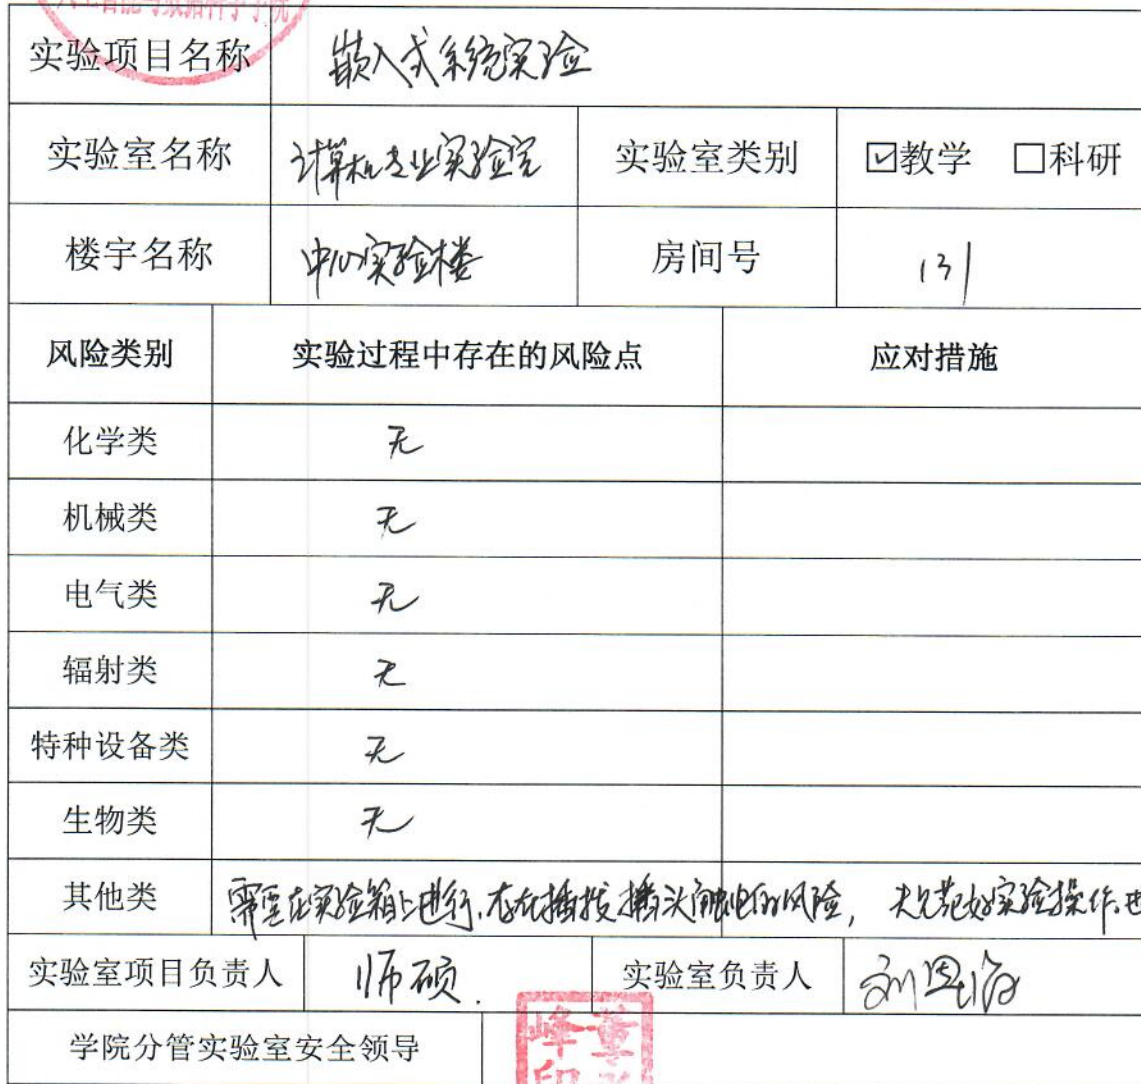 人工智能与数据科学学院
实验项目名称 嵌入式系统实验
实验室名称 计算机专业实验室 实验室类别 ☑教学 □科研
楼宇名称 中心实验楼 房间号 131
风险类别 实验过程中存在的风险点 应对措施
化学类 无
机械类 无
电气类 无
辐射类 无
特种设备类 无
生物类 无
其他类 需要在实验箱上进行,存在插拔插头触电的风险, 实验操作
实验室项目负责人 师硕 实验室负责人
学院分管实验室安全领导